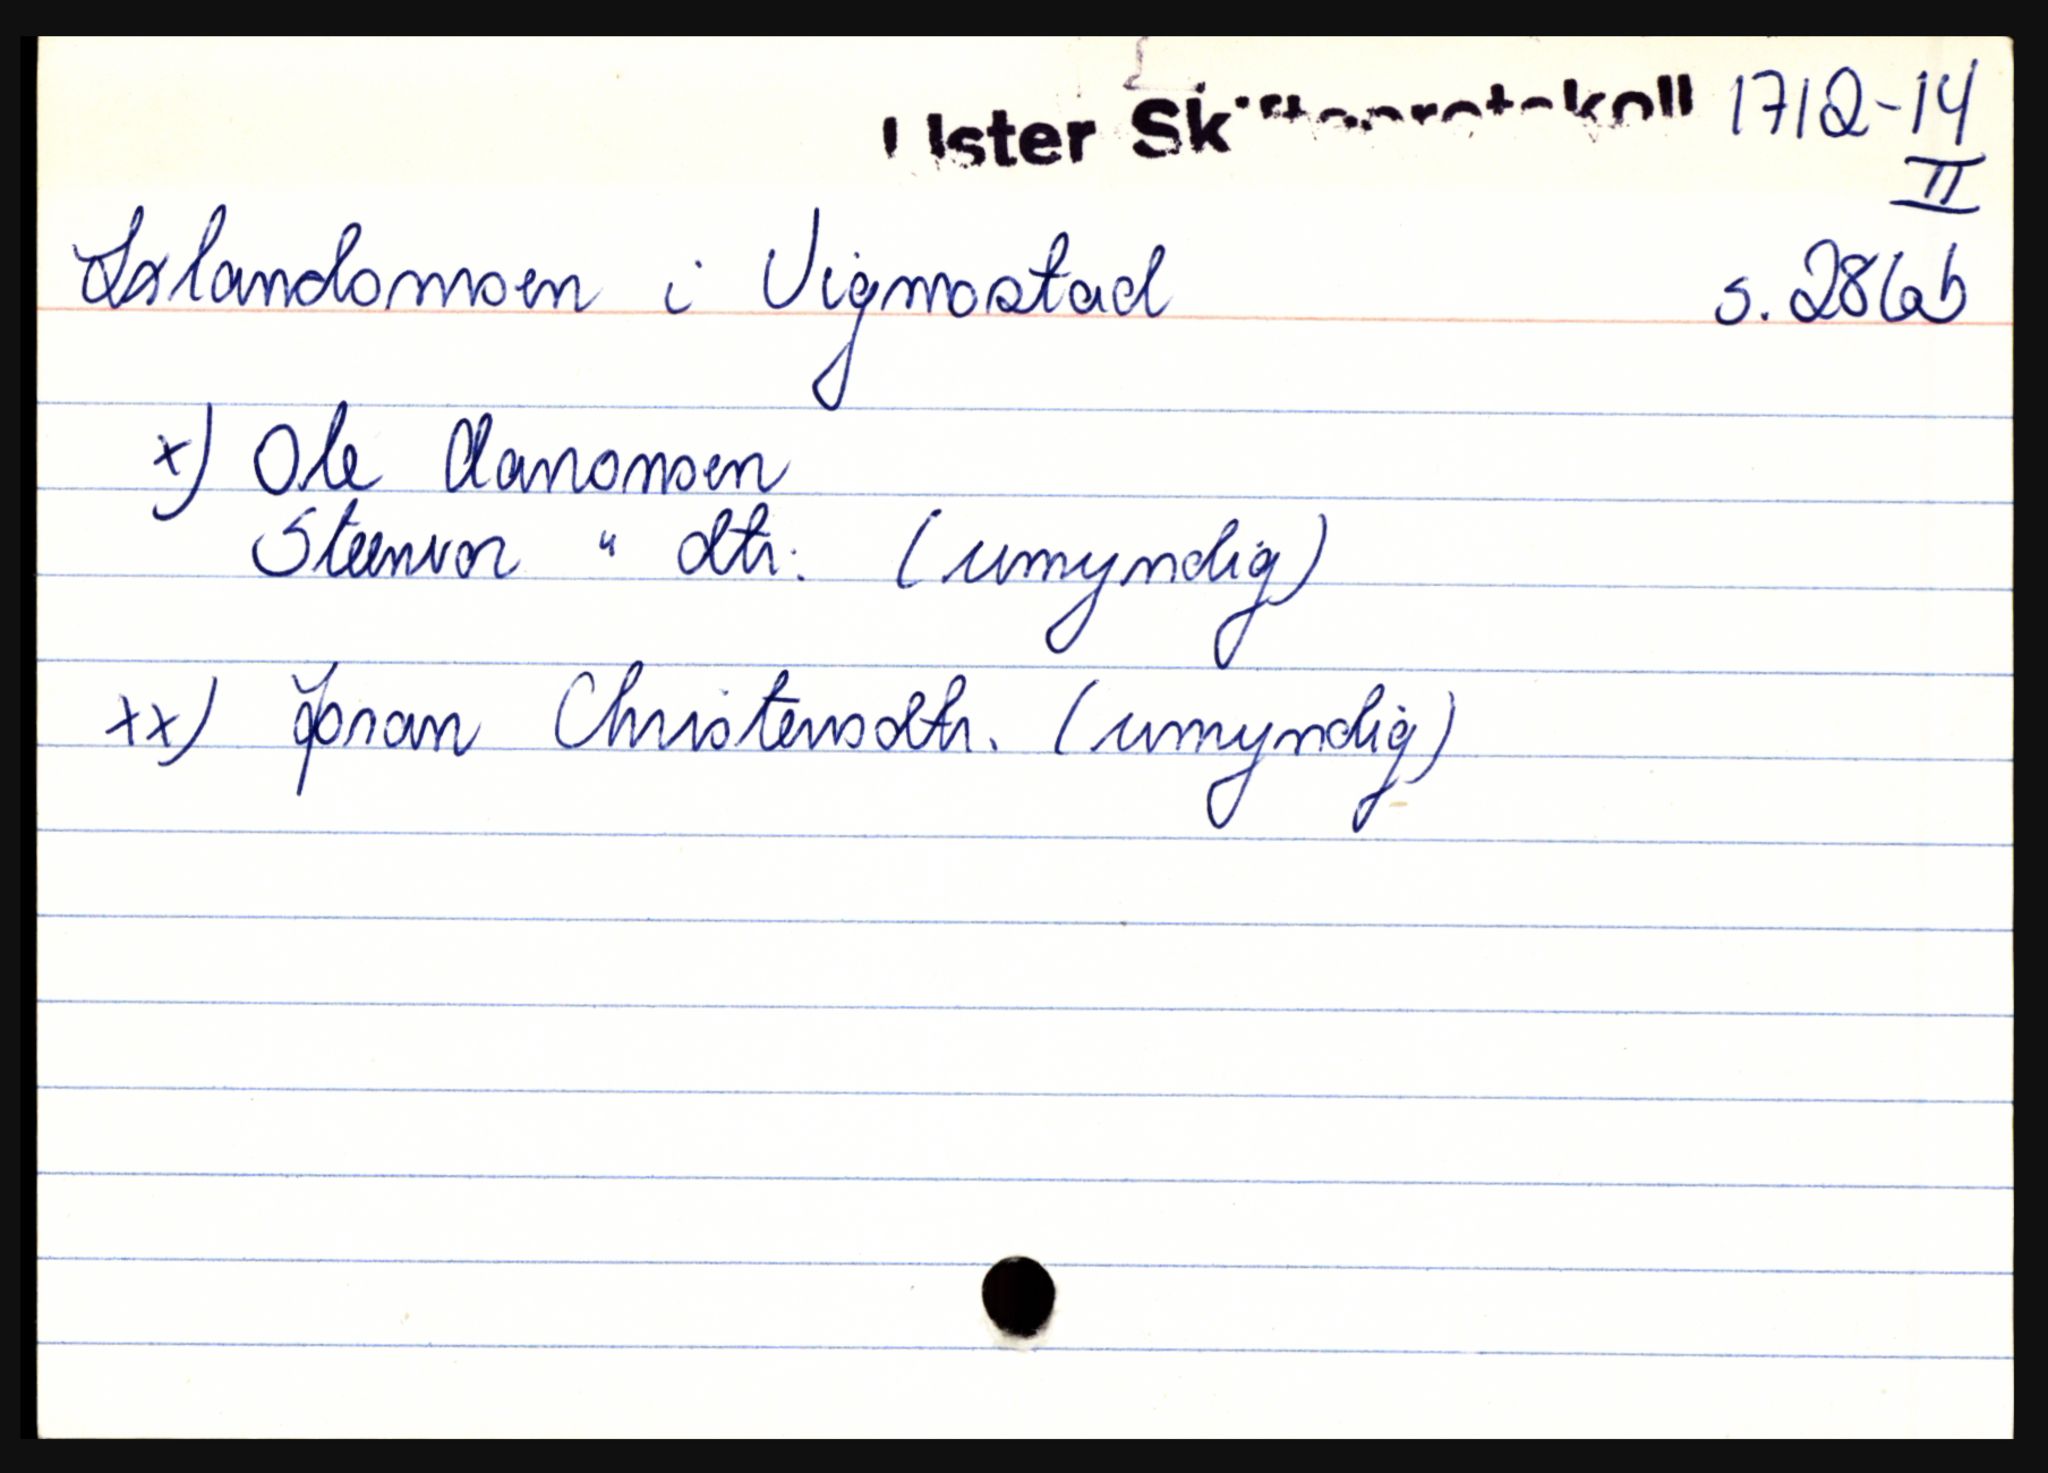 Lister Skifteprotokoll 1712-14
II
Lølandsmoen i Vigmostad s. 286b
x) Ole Aanonsen
Steenvor " dtr. (umyndig)
xx) Jøran Christensdtr. (umyndig)